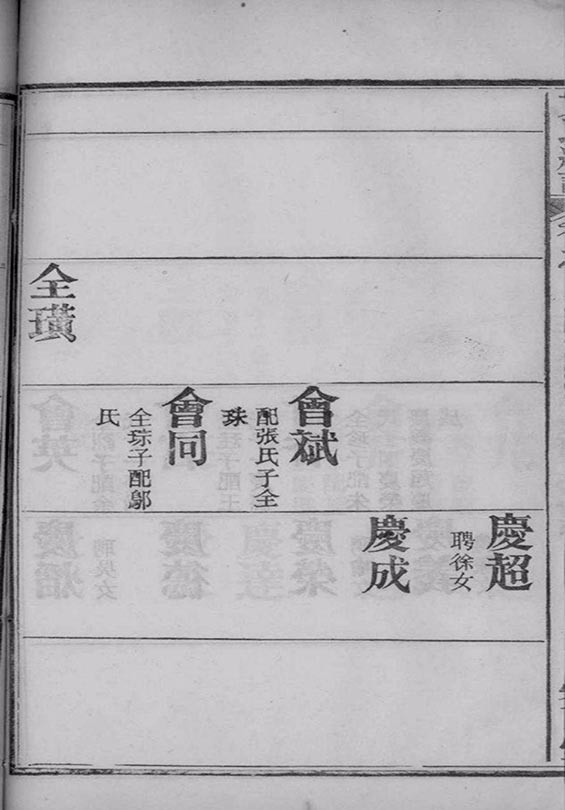 慶超
聘徐女
慶成
會斌
配張氏子全
珠
會同
全琮子配鄔
氏
全璜